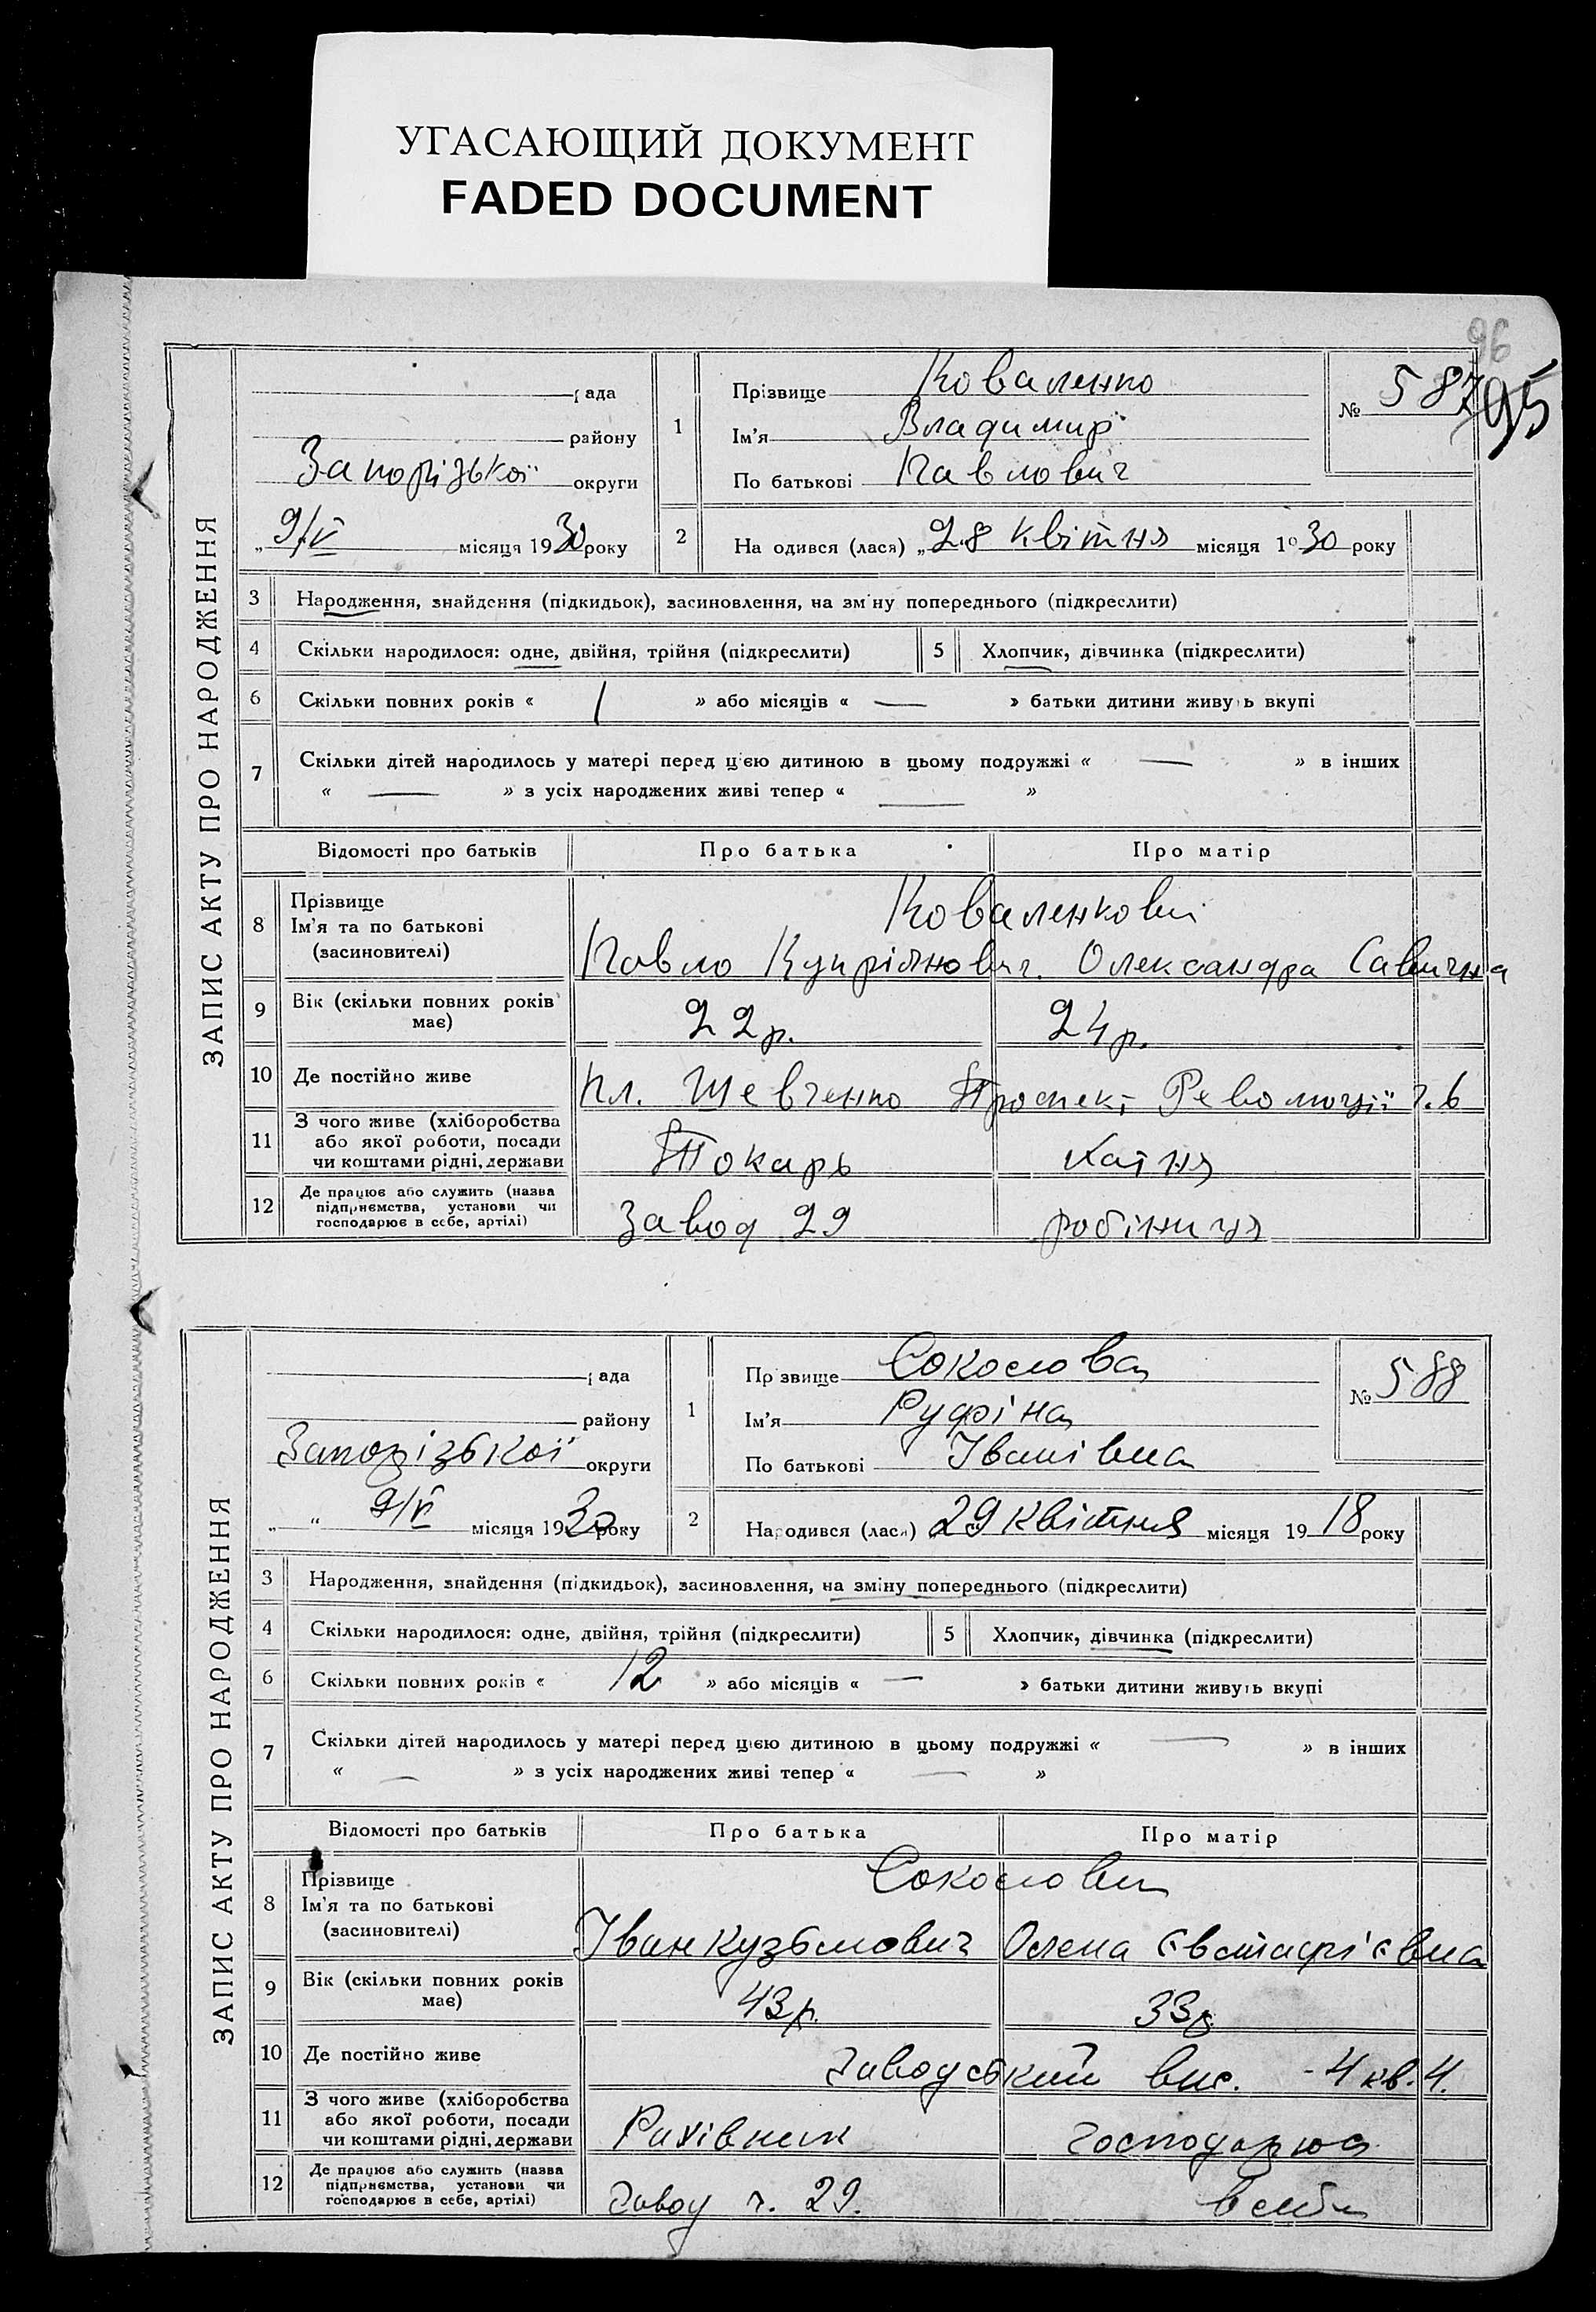 УГАСАЮЩИЙ ДОКУМЕНТ
FADED DOCUMENT
96
95
ЗАПИС АКТУ ПРО НАРОДЖЕННЯ
рада
району
Запорізької округи
„ 9/V місяця 1930 року
1
Прізвище Коваленко
Ім'я Владимир
По батькові Павлович
№ 587
2
Народився (лася) „28 квітня місяця 1930 року
3 Народження, знайдення (підкидьок), засиновлення, на зміну попереднього (підкреслити)
4 Скільки народилося: одне, двійня, трійня (підкреслити) 5 Хлопчик, дівчинка (підкреслити)
6 Скільки повних років « 1 » або місяців « — » батьки дитини живуть вкупі
7 Скільки дітей народилось у матері перед цією дитиною в цьому подружжі « — » в інших
« — » з усіх народжених живі тепер « — »
Відомості про батьків Про батька Про матір
8 Прізвище
Ім'я та по батькові
(засиновителі)
Коваленкові
Павло Купріянович. Олександра Савична
9 Вік (скільки повних років має) 22 р. 24 р.
10 Де постійно живе Пл. Шевченко Проспект Революції ч. 6
11 З чого живе (хліборобства
або якої роботи, посади
чи коштами рідні, держави
Токарь Хатня
12 Де працює або служить (назва
підприємства, установи чи
господарює в себе, артілі)
Завод 29 робітниця
ЗАПИС АКТУ ПРО НАРОДЖЕННЯ
рада
району
Запорізької округи
„ “ 9/V місяця 1930 року
1
Прізвище Соколова
Ім'я Руфіна
По батькові Іванівна
№ 588
2
Народився (лася) 29 квітня місяця 1918 року
3 Народження, знайдення (підкидьок), засиновлення, на зміну попереднього (підкреслити)
4 Скільки народилося: одне, двійня, трійня (підкреслити) 5 Хлопчик, дівчинка (підкреслити)
6 Скільки повних років « 12 » або місяців « — » батьки дитини живуть вкупі
7 Скільки дітей народилось у матері перед цією дитиною в цьому подружжі « — » в інших
« — » з усіх народжених живі тепер « — »
Відомості про батьків Про батька Про матір
8 Прізвище
Ім'я та по батькові
(засиновителі)
Соколови
Іван Кузьмович Олена Євстафієвна
9 Вік (скільки повних років має) 43 р. 33 р.
10 Де постійно живе Заводський вис. - 4 кв. 4.
11 З чого живе (хліборобства
або якої роботи, посади
чи коштами рідні, держави
Рахівник господарює
12 Де працює або служить (назва
підприємства, установи чи
господарює в себе, артілі)
Завод ч. 29. в себе